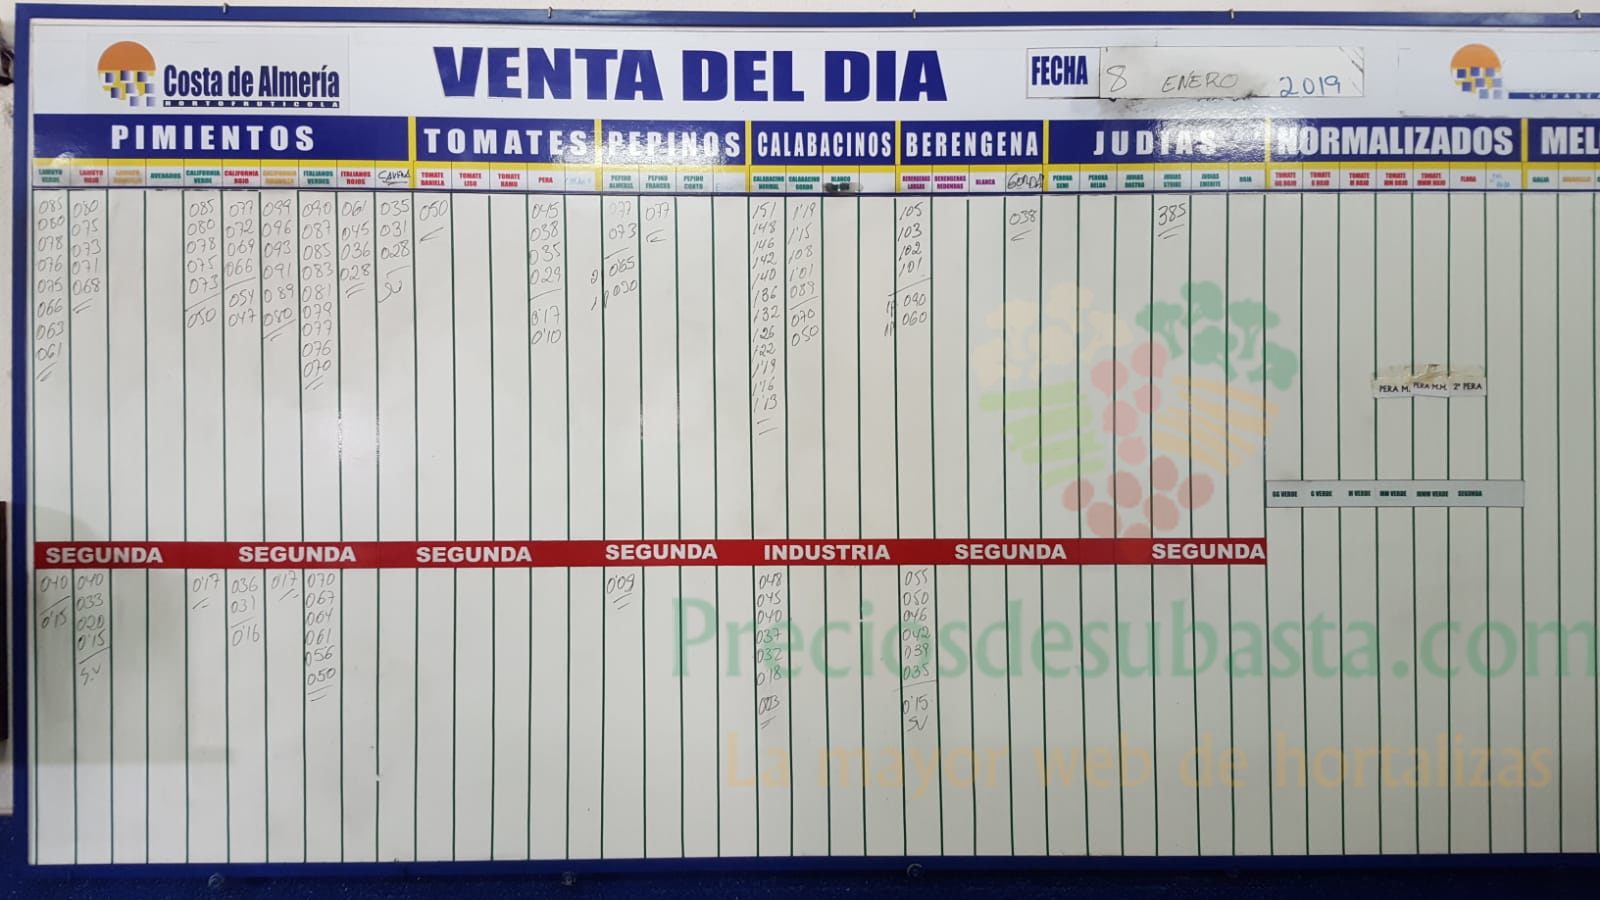 Costa de Almería
HORTOFRUTICOLA
VENTA DEL DIA
FECHA 8 ENERO 2019
SUBASTA
PIMIENTOS TOMATES PEPINOS CALABACINOS BERENGENA JUDIAS NORMALIZADOS MEL
LAMUYO VERDE
LAMUYO ROJO
LAMUYO AMARILLO
ASURADOS
CALIFORNIA VERDE
CALIFORNIA ROJO
CALIFORNIA AMARILLO
ITALIANOS VERDES
ITALIANOS ROJOS
TOMATE DANIELA
TOMATE LISO
TOMATE RAMO
PERA
PEPINO ALMERIA
PEPINO FRANCES
PEPINO CORTO
CALABACINO NORMAL
CALABACINO GORDO
BLANCO
BERENGENAS LARGAS
BERENGENAS REDONDAS
BLANCA
GORDA
PERONA SEMI
PERONA HELDA
JUDIAS RASTRO
JUDIAS STRIKE
JUDIAS EMERITE
ROJA
TOMATE GG ROJO
TOMATE G ROJO
TOMATE M ROJO
TOMATE MM ROJO
TOMATE MMM ROJO
FLORA
GALIA
AMARILLO
085 080 085 077 099 090 061 035 050 045 077 077 151 1'19 105 038 385
080 075 080 072 096 087 045 031 038 073 148 1'15 103
078 073 078 069 093 085 036 028 035 065 146 108 102
076 071 075 066 091 083 028 SV 029 030 142 1'01 101
075 068 073 054 089 081 0'17 140 089 090
066 050 047 080 079 0'10 136 070 060
063 077 132 050
061 076 126
070 122
1'19
1'16
1'13
PERA M. PERA M.M. 2ª PERA
GG VERDE G VERDE M VERDE MM VERDE MMM VERDE SEGUNDA
SEGUNDA SEGUNDA SEGUNDA SEGUNDA INDUSTRIA SEGUNDA SEGUNDA
040 040 0'17 036 017 070 0'09 048 055
0'15 033 031 067 045 050
020 0'16 064 040 046
0'15 061 037 042
S.V 056 032 039
050 018 035
003 0'15
SV
Preciosdesubasta.com
La mayor web de hortalizas